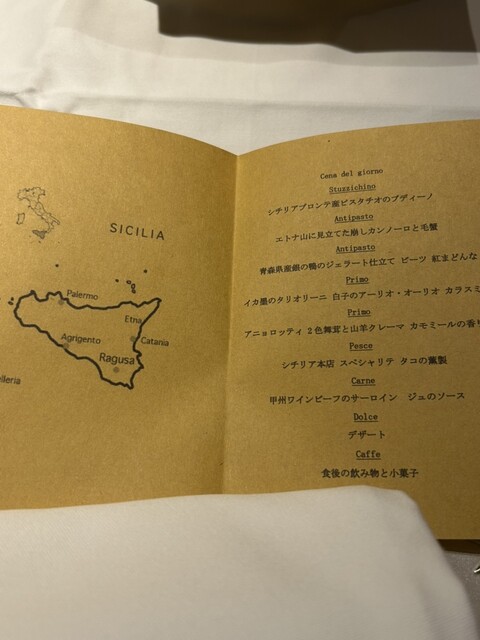 SICILIA
Palermo
Etna
Catania
Agrigento
Ragusa
elleria
Cena del giorno
Stuzzichino
シチリアブロンテ産ピスタチオのブディーノ
Antipasto
エトナ山に見立てた崩しカンノーロと毛蟹
Antipasto
青森県産銀の鴨のジェラート仕立て ビーツ 紅まどんな
Primo
イカ墨のタリオリーニ 白子のアーリオ・オーリオ カラスミ
Primo
アニョロッティ 2色舞茸と山羊クレーマ カモミールの香り
Pesce
シチリア本店 スペシャリテ タコの薫製
Carne
甲州ワインビーフのサーロイン ジュのソース
Dolce
デザート
Caffe
食後の飲み物と小菓子